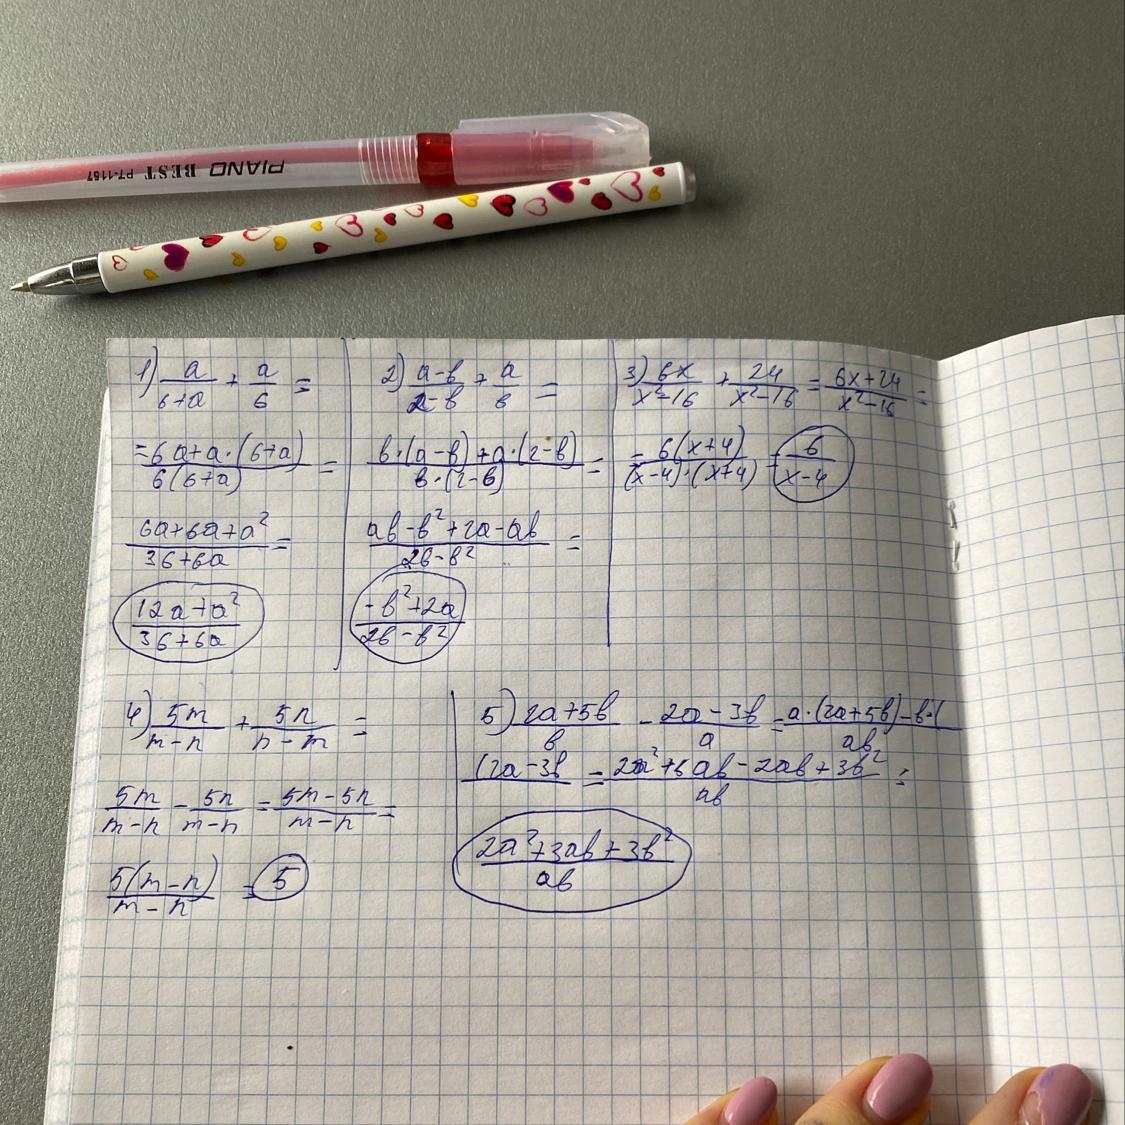 PIANO BEST PT-1157
1) a/(6+a) + a/6 =
= (6a+a·(6+a))/(6(6+a)) =
(6a+6a+a²)/(36+6a) =
(12a+a²)/(36+6a)
2) (a-b)/(2-b) + a/b =
(b·(a-b)+a·(2-b))/(b·(2-b)) =
(ab-b²+2a-ab)/(2b-b²) =
(-b²+2a)/(2b-b²)
3) 6x/(x²-16) + 24/(x²-16) = (6x+24)/(x²-16) =
= 6(x+4)/((x-4)·(x+4)) = 6/(x-4)
4) 5m/(m-n) + 5n/(n-m) =
5m/(m-n) - 5n/(m-n) = (5m-5n)/(m-n) =
5(m-n)/(m-n) = 5
5) (2a+5b)/b - (2a-3b)/a = (a·(2a+5b)-b·(/ab
(2a-3b = (2a²+5ab-2ab+3b²)/ab =
(2a²+3ab+3b²)/ab